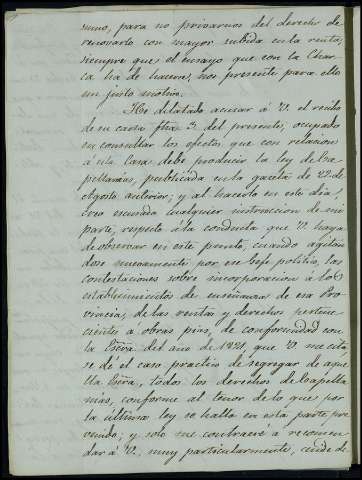 sumo, para no privarnos del derecho de
renovarlo con mayor subida en la renta,
siempre que el ensayo que con la Char-
ca ha de hacerse, nos presente para ello
un justo motivo.
He dilatado acusar á V. el recibo
de su carta fha 3. del presente, ocupado
en consultar los efectos, que con relacion
á esta Casa debe producir la ley de Ca-
pellanias, publicada en la gaceta de 22 de
Agosto anterior; y al hacerlo en este dia,
creo escusada cualquier instruccion de mi
parte, respecto á la conducta que V. haya
de observar en este punto, cuando agitan-
dose nuevamente por ese Gefe politico, las
contestaciones sobre incorporacion á los
establecimientos de enseñanza de esa Pro-
vincia, de las rentas y derechos pertene-
cientes a obras pias, de conformidad con
la Escra. del año de 1821, que V. me cita,
se dé el caso practico de segregar de aque-
lla Escra, todos los derechos de Capella-
nias, conforme al tenor de lo que por
la última ley se halla en esta parte pre-
venido; y solo me contraeré á recomen-
dar á V. muy particularmente, cuide de